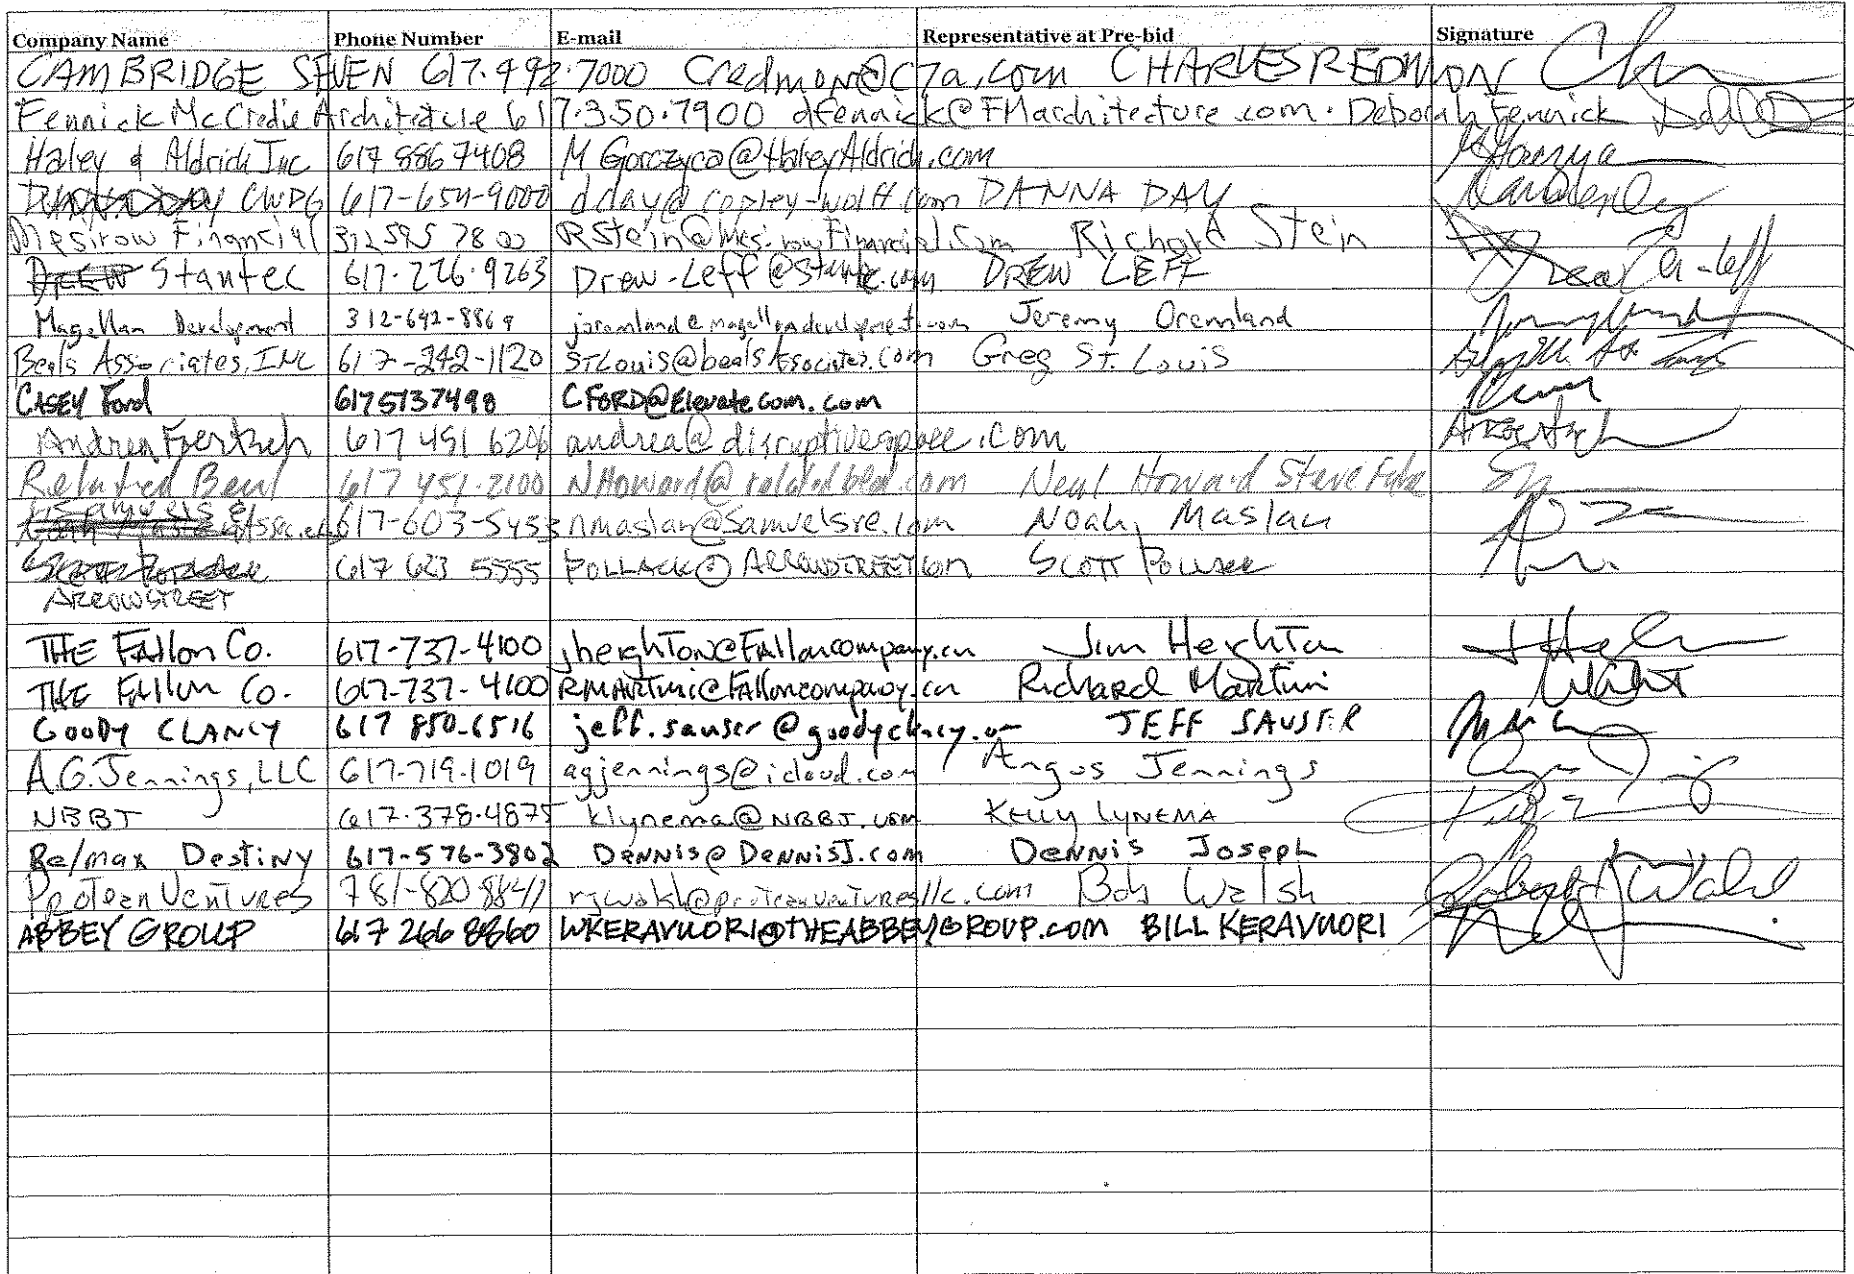 Company Name Phone Number E-mail Representative at Pre-bid Signature
CAMBRIDGE SEVEN 617.492.7000 Credmon@C7a.com CHARLES REDMON
Fennick McCredie Architecture 617.350.7900 dfennick@FMarchitecture.com. Deborah Fennick
Haley & Aldrich Inc 617 886 7408 MGorczyca@HaleyAldrich.com
CWDG 617-654-9000 dday@copley-wolff.com DANNA DAY
Mesirow Financial 312 595 78 00 RStein@MesirowFinancial.com Richard Stein
Stantec 617-226-9263 Drew.Leff@Stantec.com DREW LEFF
Magellan Development 312-642-8869 joremland@magellandevelopment.com Jeremy Oremland
Beals Associates, INC 617-242-1120 STLouis@bealsAssociates.com Greg ST. Louis
CASEY Ford 6175137498 CFORD@Elevatecom.com
Andrea Foertsch 617 451 6206 andrea@disruptivespace.com
Related Beal 617 451-2100 NHoward@relatedbeal.com Neal Howard Steve
Samuels &
Assoc. 617-603-5453 nmaslan@Samuelsre.com Noah Maslan
617 623 5555 POLLACK@ARROWSTREET.COM SCOTT POLLACK
ARROWSTREET
THE Fallon Co. 617-737-4100 jheighTon@Falloncompany.cm Jim HeighTon
THE Fallon Co. 617-737-4100 RMARTini@Falloncompany.cm Richard Martini
GOODY CLANCY 617 850-6516 jeff.sauser@goodyclancy.com JEFF SAUSER
A.G. Jennings, LLC 617-719-1019 agjennings@icloud.com Angus Jennings
NBBJ 617.378.4875 klynema@NBBJ.com KELLY LYNEMA
Re/max Destiny 617-576-3802 Dennis@DennisJ.com Dennis Joseph
ProTean VenTures 781-820-8841 rjwalsh@proteanventuresllc.com Bob Walsh
ABBEY GROUP 617 266 8860 WKERAVUORI@THEABBEYGROUP.com BILL KERAVUORI